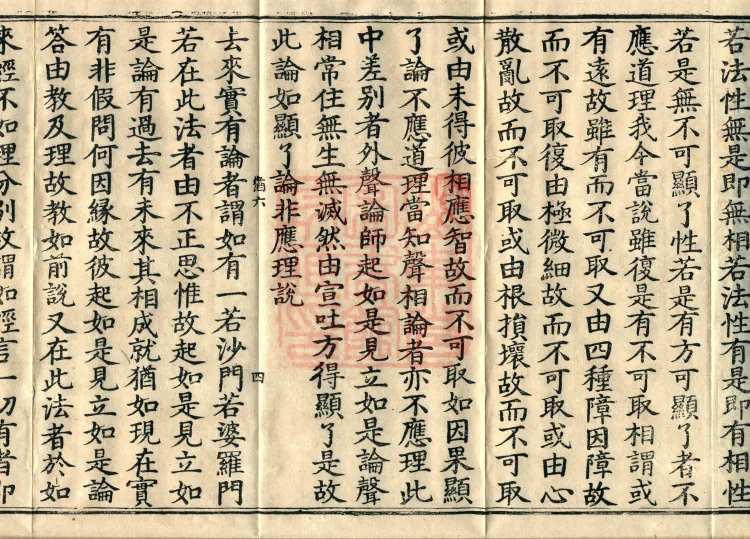 若法性無是即無相若法性有是即有相性
若是無不可顯了性若是有方可顯了者不
應道理我今當說雖復是有不可取相謂或
有遠故雖有而不可取又由四種障因障故
而不可取復由極微細故而不可取或由心
散亂故而不可取或由根損壞故而不可取
或由未得彼相應智故而不可取如因果顯
了論不應道理當知聲相論者亦不應理此
中差別者外聲論師起如是見立如是論聲
相常住無生無滅然由宣吐方得顯了是故
此論如顯了論非應理說
猶六
四
去來實有論者謂如有一若沙門若婆羅門
若在此法者由不正思惟故起如是見立如
是論有過去有未來其相成就猶如現在實
有非假問何因緣故彼起如是見立如是論
答由教及理故教如前說又在此法者於如
來經不如理分別故謂如經言一切有者即